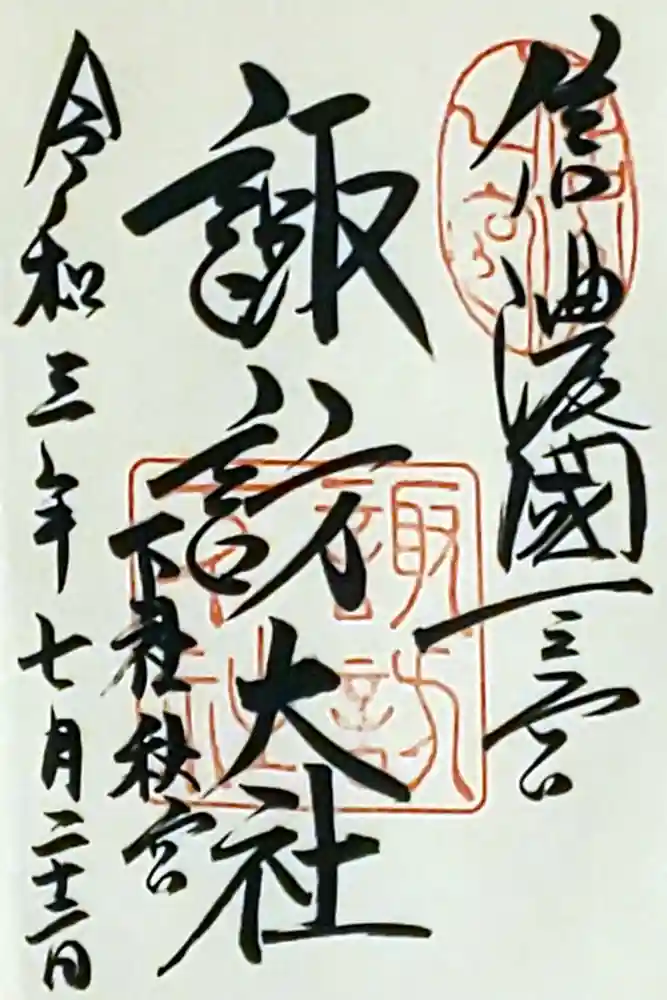 信濃國一之宮
諏訪大社
下社秋宮
令和三年七月二十二日
諏訪
下社